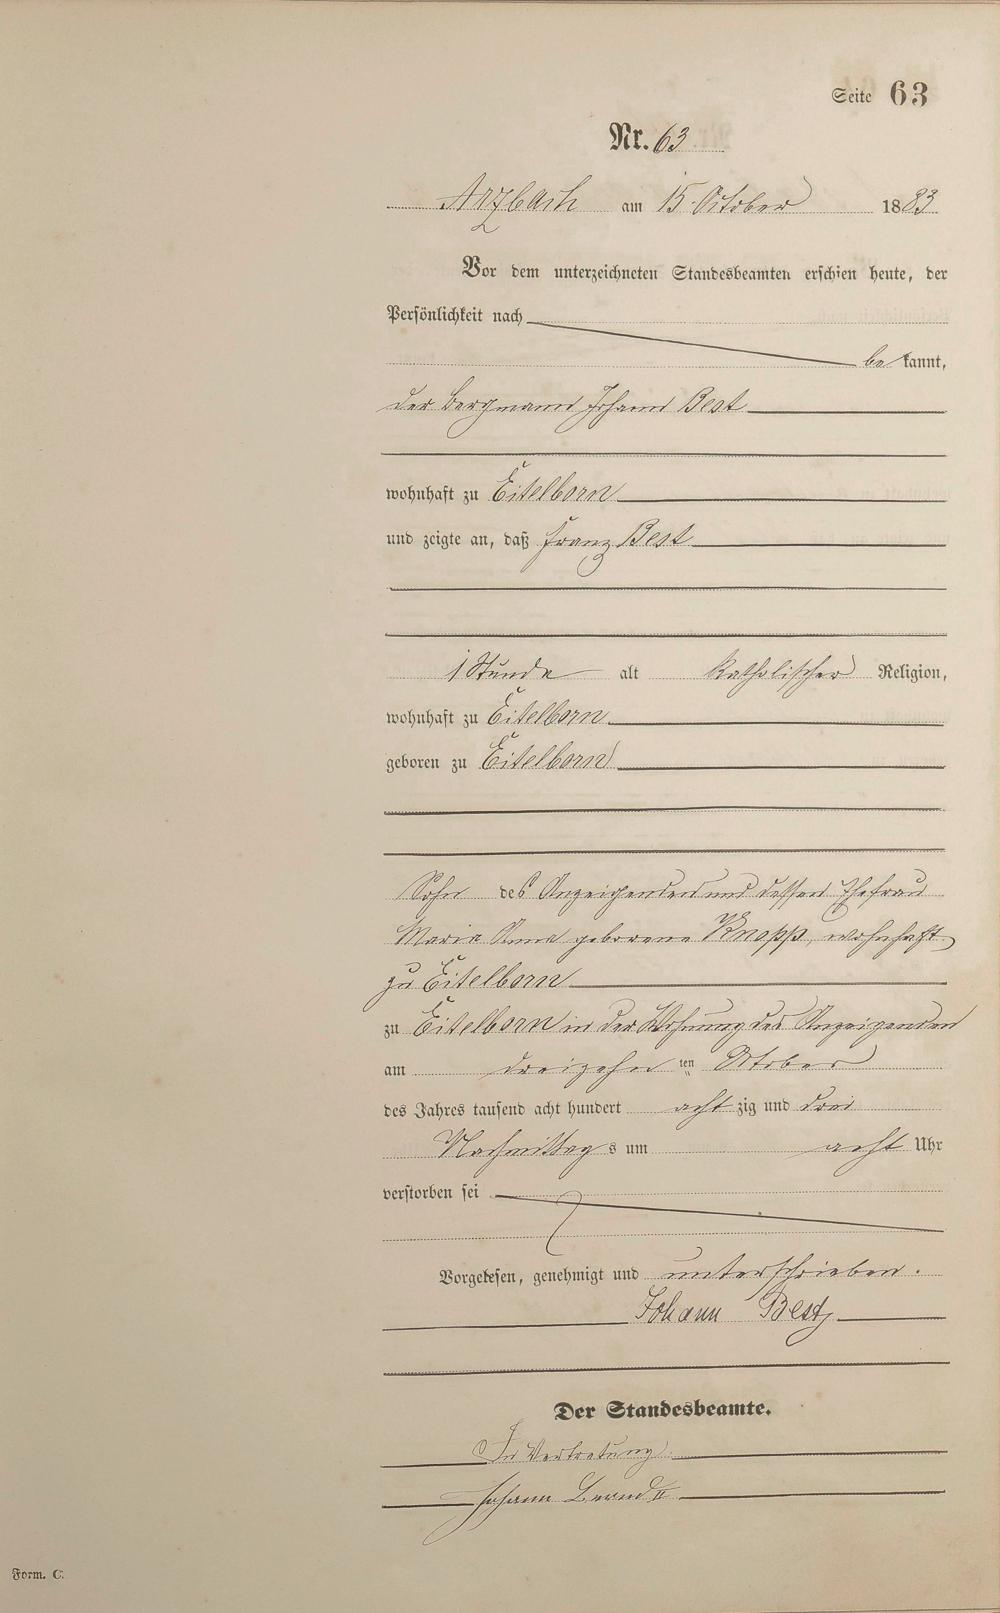 Seite 63
Nr. 63
Arzbach am 15. October 1883
Vor dem unterzeichneten Standesbeamten erschien heute, der
Persönlichkeit nach
be kannt,
der Bergmann Johann Best
wohnhaft zu Eitelborn
und zeigte an, daß Franz Best
1 Stunde alt katholischer Religion,
wohnhaft zu Eitelborn
geboren zu Eitelborn
Sohn des Anzeigenden und dessen Ehefrau
Maria Anna geborene Knopp, wohnhaft
zu Eitelborn
zu Eitelborn in der Wohnung des Anzeigenden
am dreizehn ten Oktober
des Jahres tausend acht hundert acht zig und drei
Nachmittag s um acht Uhr
verstorben sei
Vorgelesen, genehmigt und unterschrieben.
Johann Best
Der Standesbeamte.
In Vertretung
Johann Bernd II
Form. C.